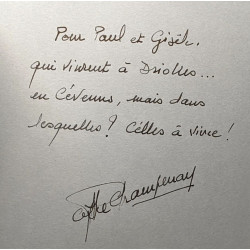 Pour Paul et Gisèle.
qui vinrent à Driolles...
en Cévennes, mais dans
lesquelles ? Celles à vivre !